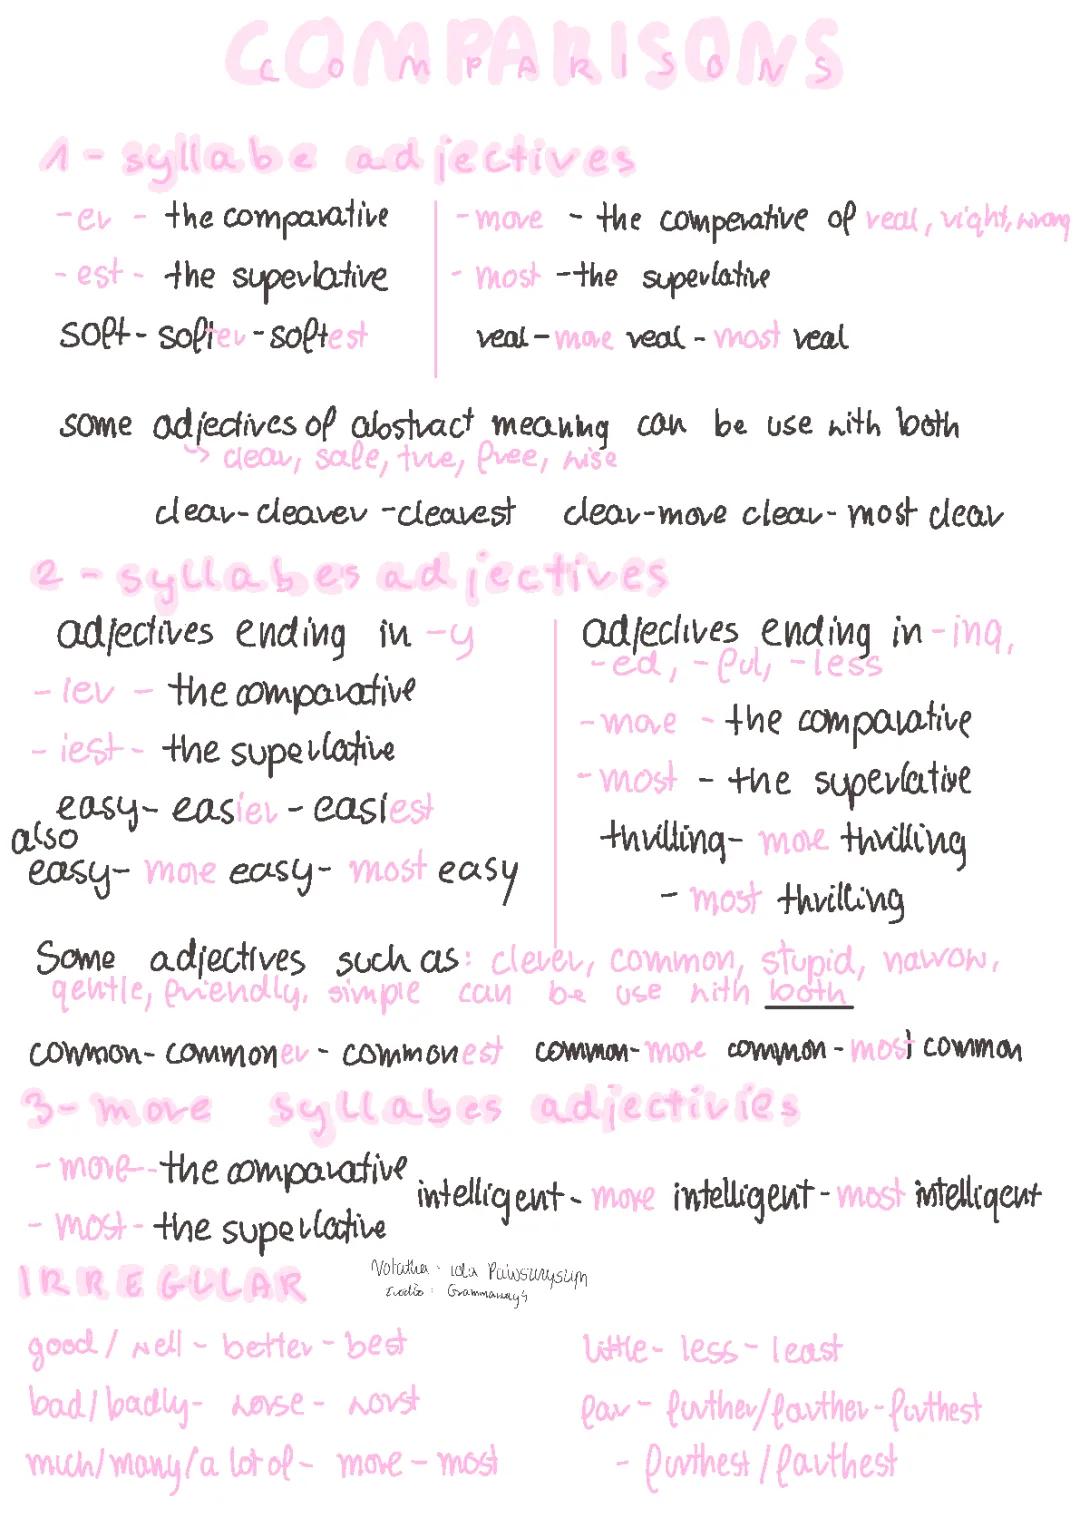 COMPARISONS
COMPARISONS
1 - syllabe adjectives
-er - the comparative
- est - the superlative
soft - softer - softest
- more - the comperative of real, right, wrong
- most - the superlative
real - more real - most real
some adjectives of abstract meaning can be use with both
↳ clear, safe, true, free, wise
clear - clearer - clearest clear - more clear - most clear
2 - syllabes adjectives
adjectives ending in -y
- ier - the comparative
- iest - the superlative
easy - easier - easiest
also
easy - more easy - most easy
adjectives ending in -ing,
-ed, -ful, -less
- more - the comparative
- most - the superlative
thrilling - more thrilling
- most thrilling
Some adjectives such as: clever, common, stupid, narrow,
gentle, friendly, simple can be use with both
common - commoner - commonest common - more common - most common
3 - more syllabes adjectivies
- more - the comparative
- most - the superlative
intelligent - more intelligent - most intelligent
IRREGULAR
good / well - better - best
bad / badly - worse - worst
much / many / a lot of - more - most
little - less - least
far - further / farther - furthest
- furthest / farthest